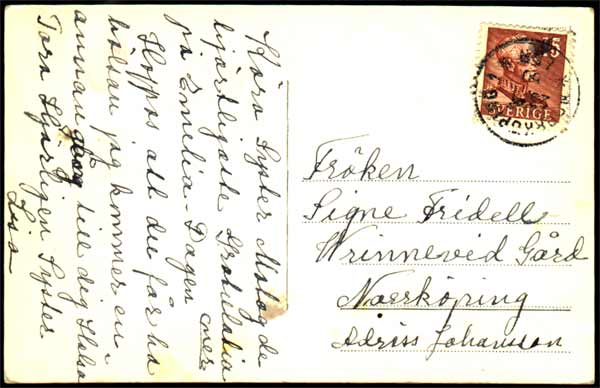 Kära Syster Motag de
hjärtligaste Gratulatio
på Emelia-Dagen
Hoppas att du får ha
hälsan jag kommer en
annan dag till dig Hälsa
Tora Hjärtligen Syster
Lisa
15
SVERIGE
NORRKÖPING
Fröken
Signe Fridell
Wrinnevid Gård
Norrköping
Adriss Johansson